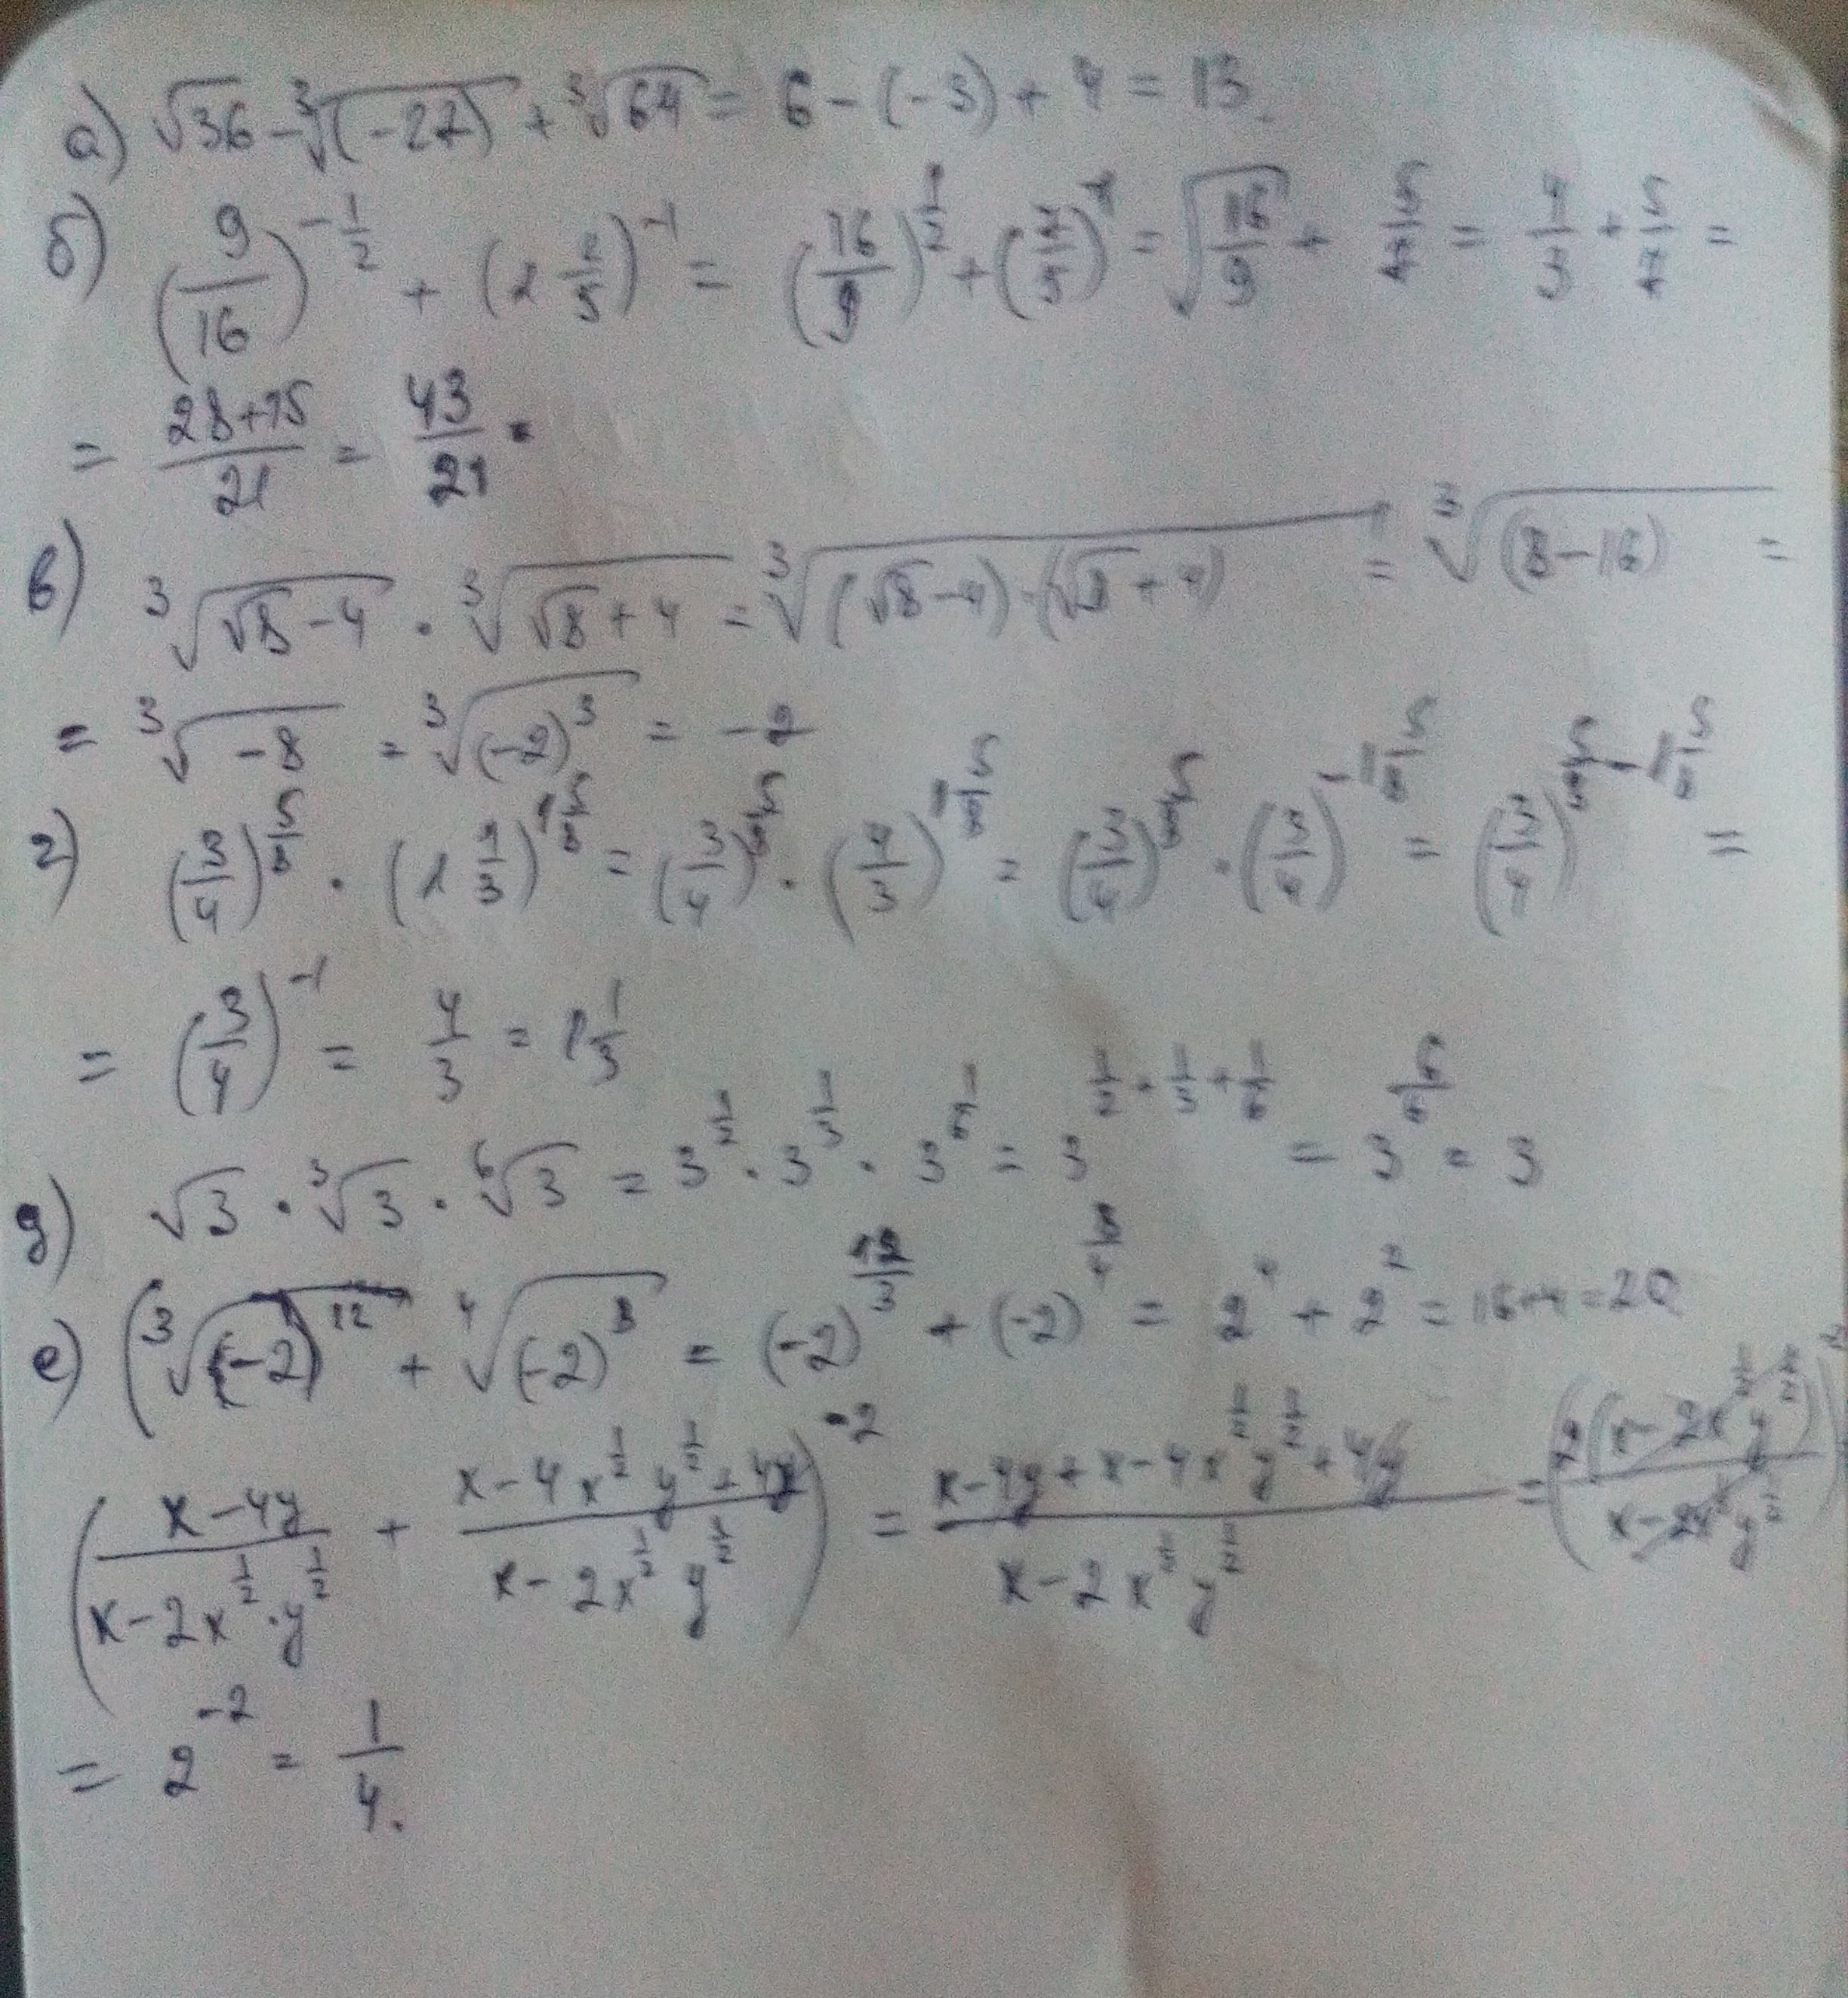 а) √36 − ³√(−27) + ³√64 = 6 − (−3) + 4 = 13.
б) (9/16)^(−1/2) + (1 2/5)^(−1) = (16/9)^(1/2) + (7/5)^(−1) = √(16/9) + 5/7 = 4/3 + 5/7 =
= (28+15)/21 = 43/21.
в) ³√(√8−4) · ³√(√8+4) = ³√((√8−4)·(√8+4)) = ³√(8−16) =
= ³√(−8) = ³√((−2)^3) = −2
г) (3/4)^(5/6) · (1 1/3)^(1 5/6) = (3/4)^(5/6) · (4/3)^(1 5/6) = (3/4)^(5/6) · (3/4)^(−1 5/6) = (3/4)^(5/6 − 1 5/6) =
= (3/4)^(−1) = 4/3 = 1 1/3
д) √3 · ³√3 · ⁶√3 = 3^(1/2) · 3^(1/3) · 3^(1/6) = 3^(1/2 + 1/3 + 1/6) = 3^(6/6) = 3
е) (³√((−2)^12) + ⁴√((−2)^8) = (−2)^(12/3) + (−2)^(8/4) = 2^4 + 2^2 = 16+4 = 20
((x−4y)/(x−2x^(1/2)·y^(1/2)) + (x−4x^(1/2)y^(1/2)+4y)/(x−2x^(1/2)y^(1/2)))^(−2) = (x−4y+x−4x^(1/2)y^(1/2)+4y)/(x−2x^(1/2)y^(1/2)) = (2(x−2x^(1/2)y^(1/2))/(x−2x^(1/2)y^(1/2)))
= 2^(−2) = 1/4.